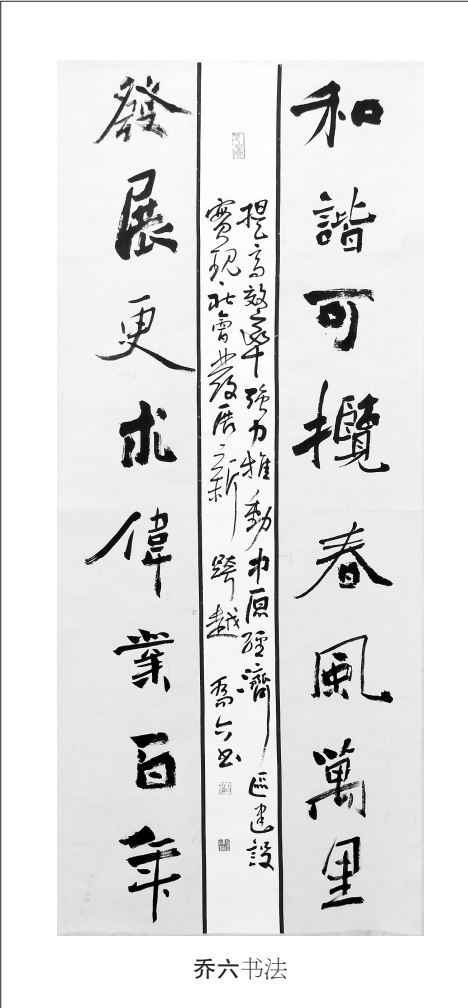 和諧可攬春風萬里
提高效率強力推動中原經濟區建設
實現社會發展新跨越 喬六书
發展更求偉業百年
乔六书法